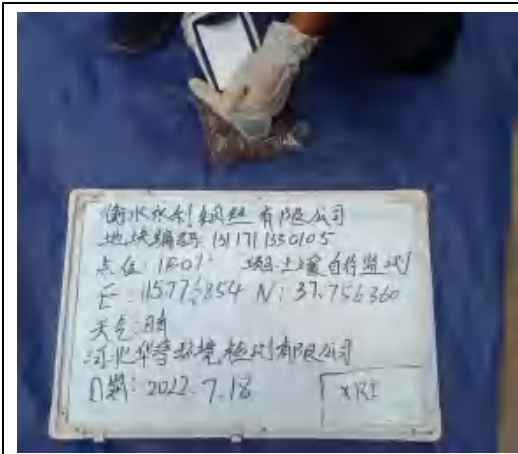 衡水永利钢丝有限公司
地块编号 1311711330105
点位: 1F01 土壤自行监测
E: N: 37.756360
天气:晴
河北华普环境检测有限公司
日期: 2022.7.18
XRF